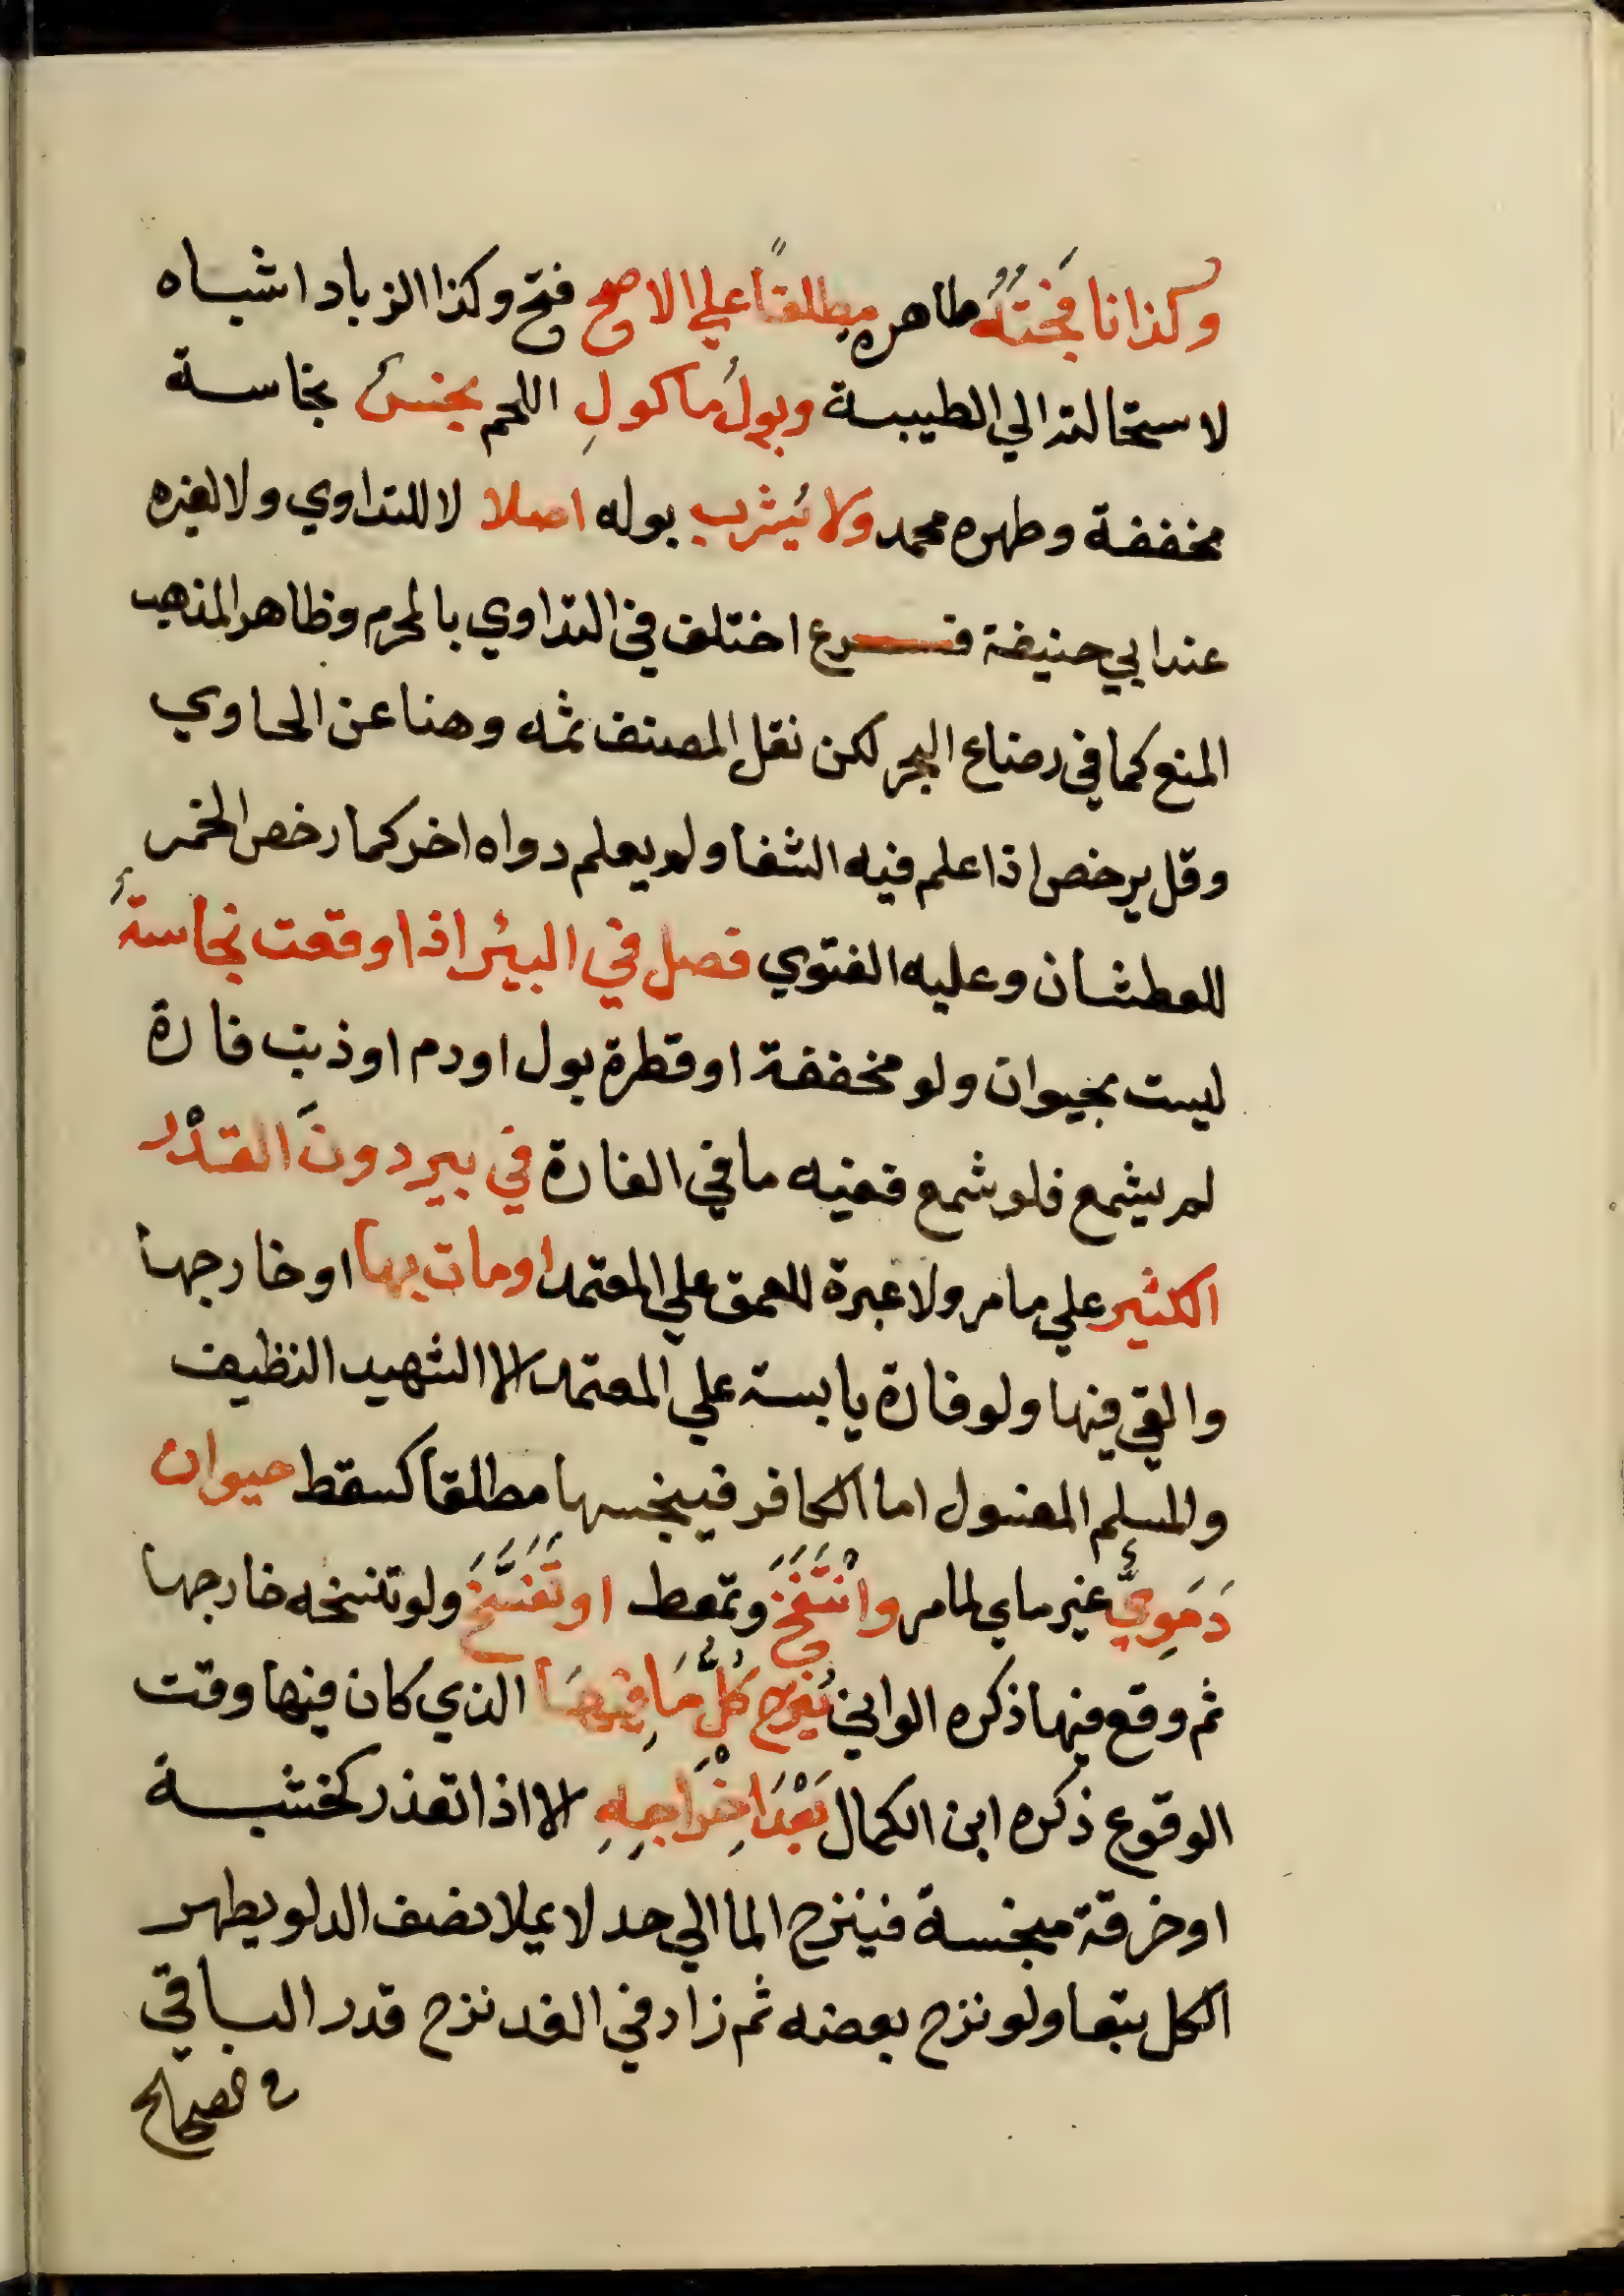 وكذا نافجتُهُ طاهره مطلقاً علي الاصح فتح وكذا الزباد اشباه
لاستحالته الي الطيبة وبولُ ماكولِ اللحم نجسٌ نجاسة
مخففة وطهره محمد ولا يُشرب بوله اصلا لا للتداوي ولا لغيره
عند ابي حنيفة فرع اختلف في التداوي بالمحرم وظاهر المذهب
المنع كما في رضاع البحر لكن نقل المصنف ثمه وهنا عن الحاوي
وقل يرخص اذا علم فيه الشفا ولم يعلم دواه اخر كما رخص الخمر
للعطشان وعليه الفتوي فصل في البئر اذا وقعت نجاسةٌ
ليست بحيوان ولو مخففة او قطرة بول او دم او ذنب فارة
لم يشمع فلو شمع ففيه ما في الفارة في بير دونَ القدْر
الكثير علي ما مر ولا عبرة للعمق علي المعتمد او مات بها او خارجها
والقي فيها ولو فارة يابسة علي المعتمد الا الشهيد النظيف
والمسلم المغسول اما الكافر فينجسها مطلقا كسقط حيوان
دَمَوِيٌّ غير ماي لما مر وانْتَفَخَ وتمعط او تَفَسَّخَ ولو تفسخه خارجها
ثم وقع فيها ذكره الواني يُنزح كُلُّ مَا فِيهَا الذي كان فيها وقت
الوقوع ذكره ابن الكمال بَعْدَ اِخْرَاجِهِ الا اذا تعذر كخشبة
او خرقة متنجسة فينزح الما الي حد لا يملا نصف الدلو يطهر
الكل تبعا ولو نزح بعضه ثم زاد في الغد نزح قدر الباقي
في الصحيح